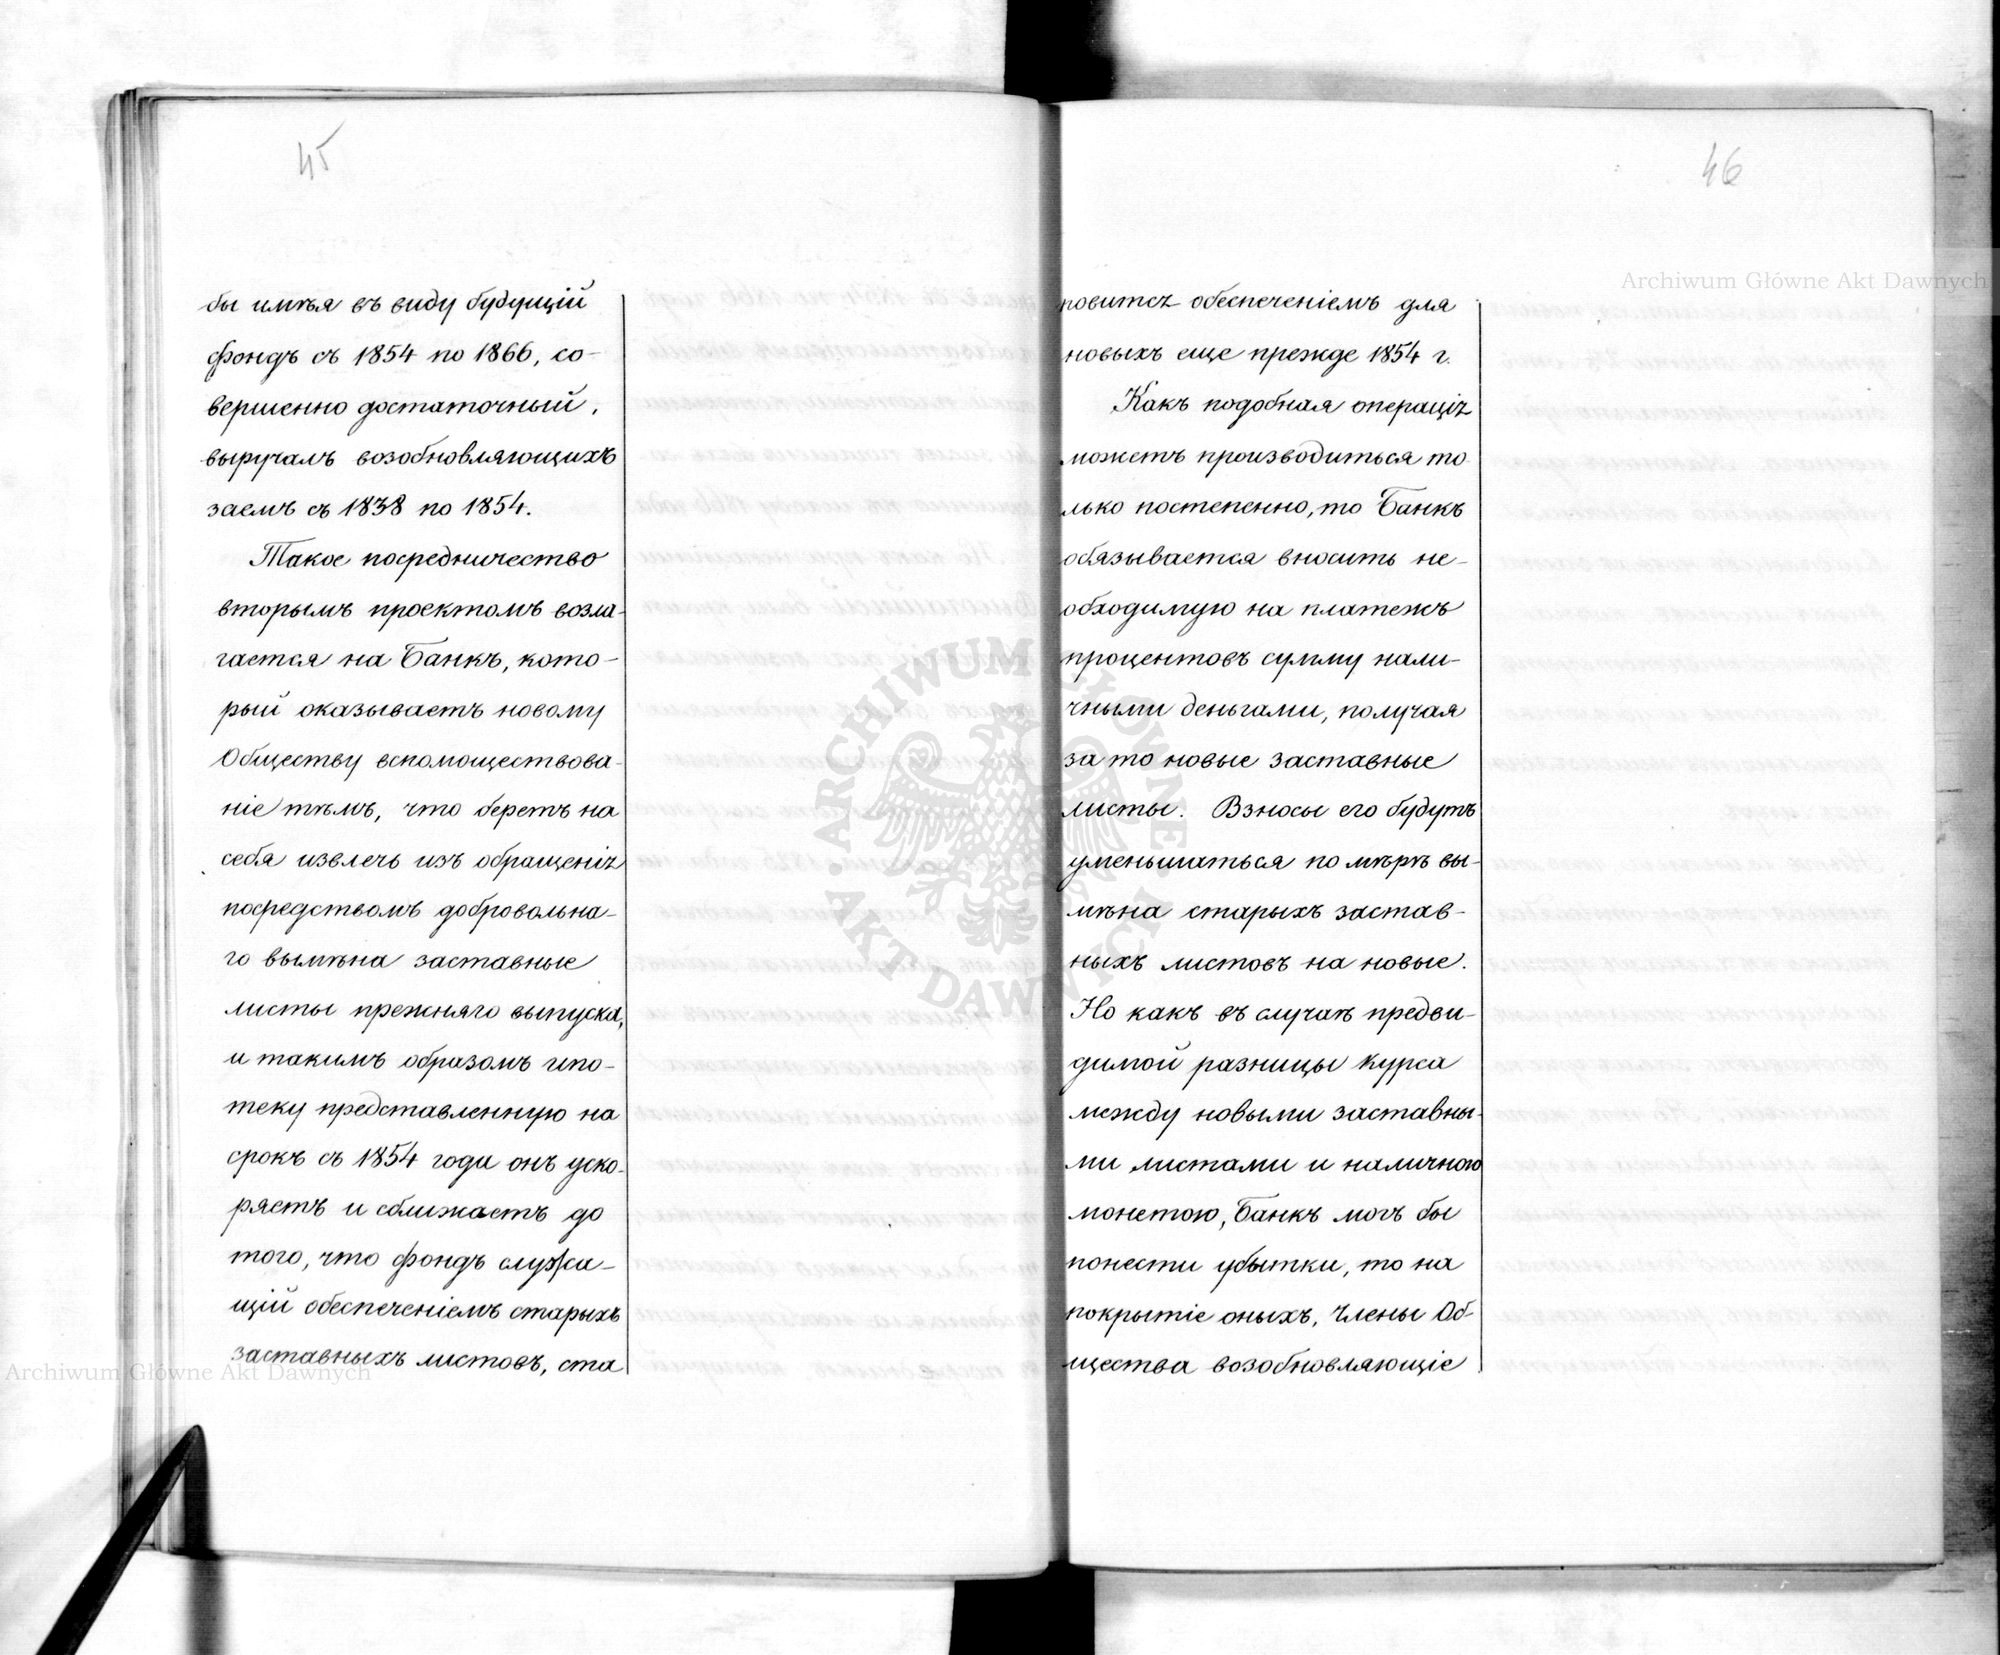 45
бы имѣя въ виду будущій
фондъ съ 1854 по 1866, со-
вершенно достаточный,
выручалъ возобновляющихъ
заемъ съ 1838 по 1854.
Такое посредничество
вторымъ проектомъ возла-
гается на Банкъ, кото-
рый оказываетъ новому
Обществу вспомоществова-
ніе тѣмъ, что беретъ на
себя извлечь изъ обращенія
посредствомъ добровольна-
го вымѣна заставные
листы прежняго выпуска,
и такимъ образомъ ипо-
теку представленную на
срокъ съ 1854 года онъ уско-
ряетъ и сближаетъ до
того, что фондъ служа-
щій обеспеченіемъ старыхъ
заставныхъ листовъ, ста
46
новится обеспеченіемъ для
новыхъ еще прежде 1854 г.
Какъ подобная операція
можетъ производиться то
лько постепенно, то Банкъ
обязывается вносить не-
обходимую на платежъ
процентовъ сумму нали-
чными деньгами, получая
за то новые заставные
листы. Взносы его будутъ
уменьшаться по мѣрѣ вы-
мѣна старыхъ застав-
ныхъ листовъ на новые.
Но какъ въ случаѣ предви-
димой разницы курса
между новыми заставны-
ми листами и наличною
монетою, Банкъ могъ бы
понести убытки, то на
покрытіе оныхъ, Члены Об-
щества возобновляющіе
Archiwum Główne Akt Dawnych
Archiwum Główne Akt Dawnych
ARCHIWUM GŁÓWNE AKT DAWNYCH